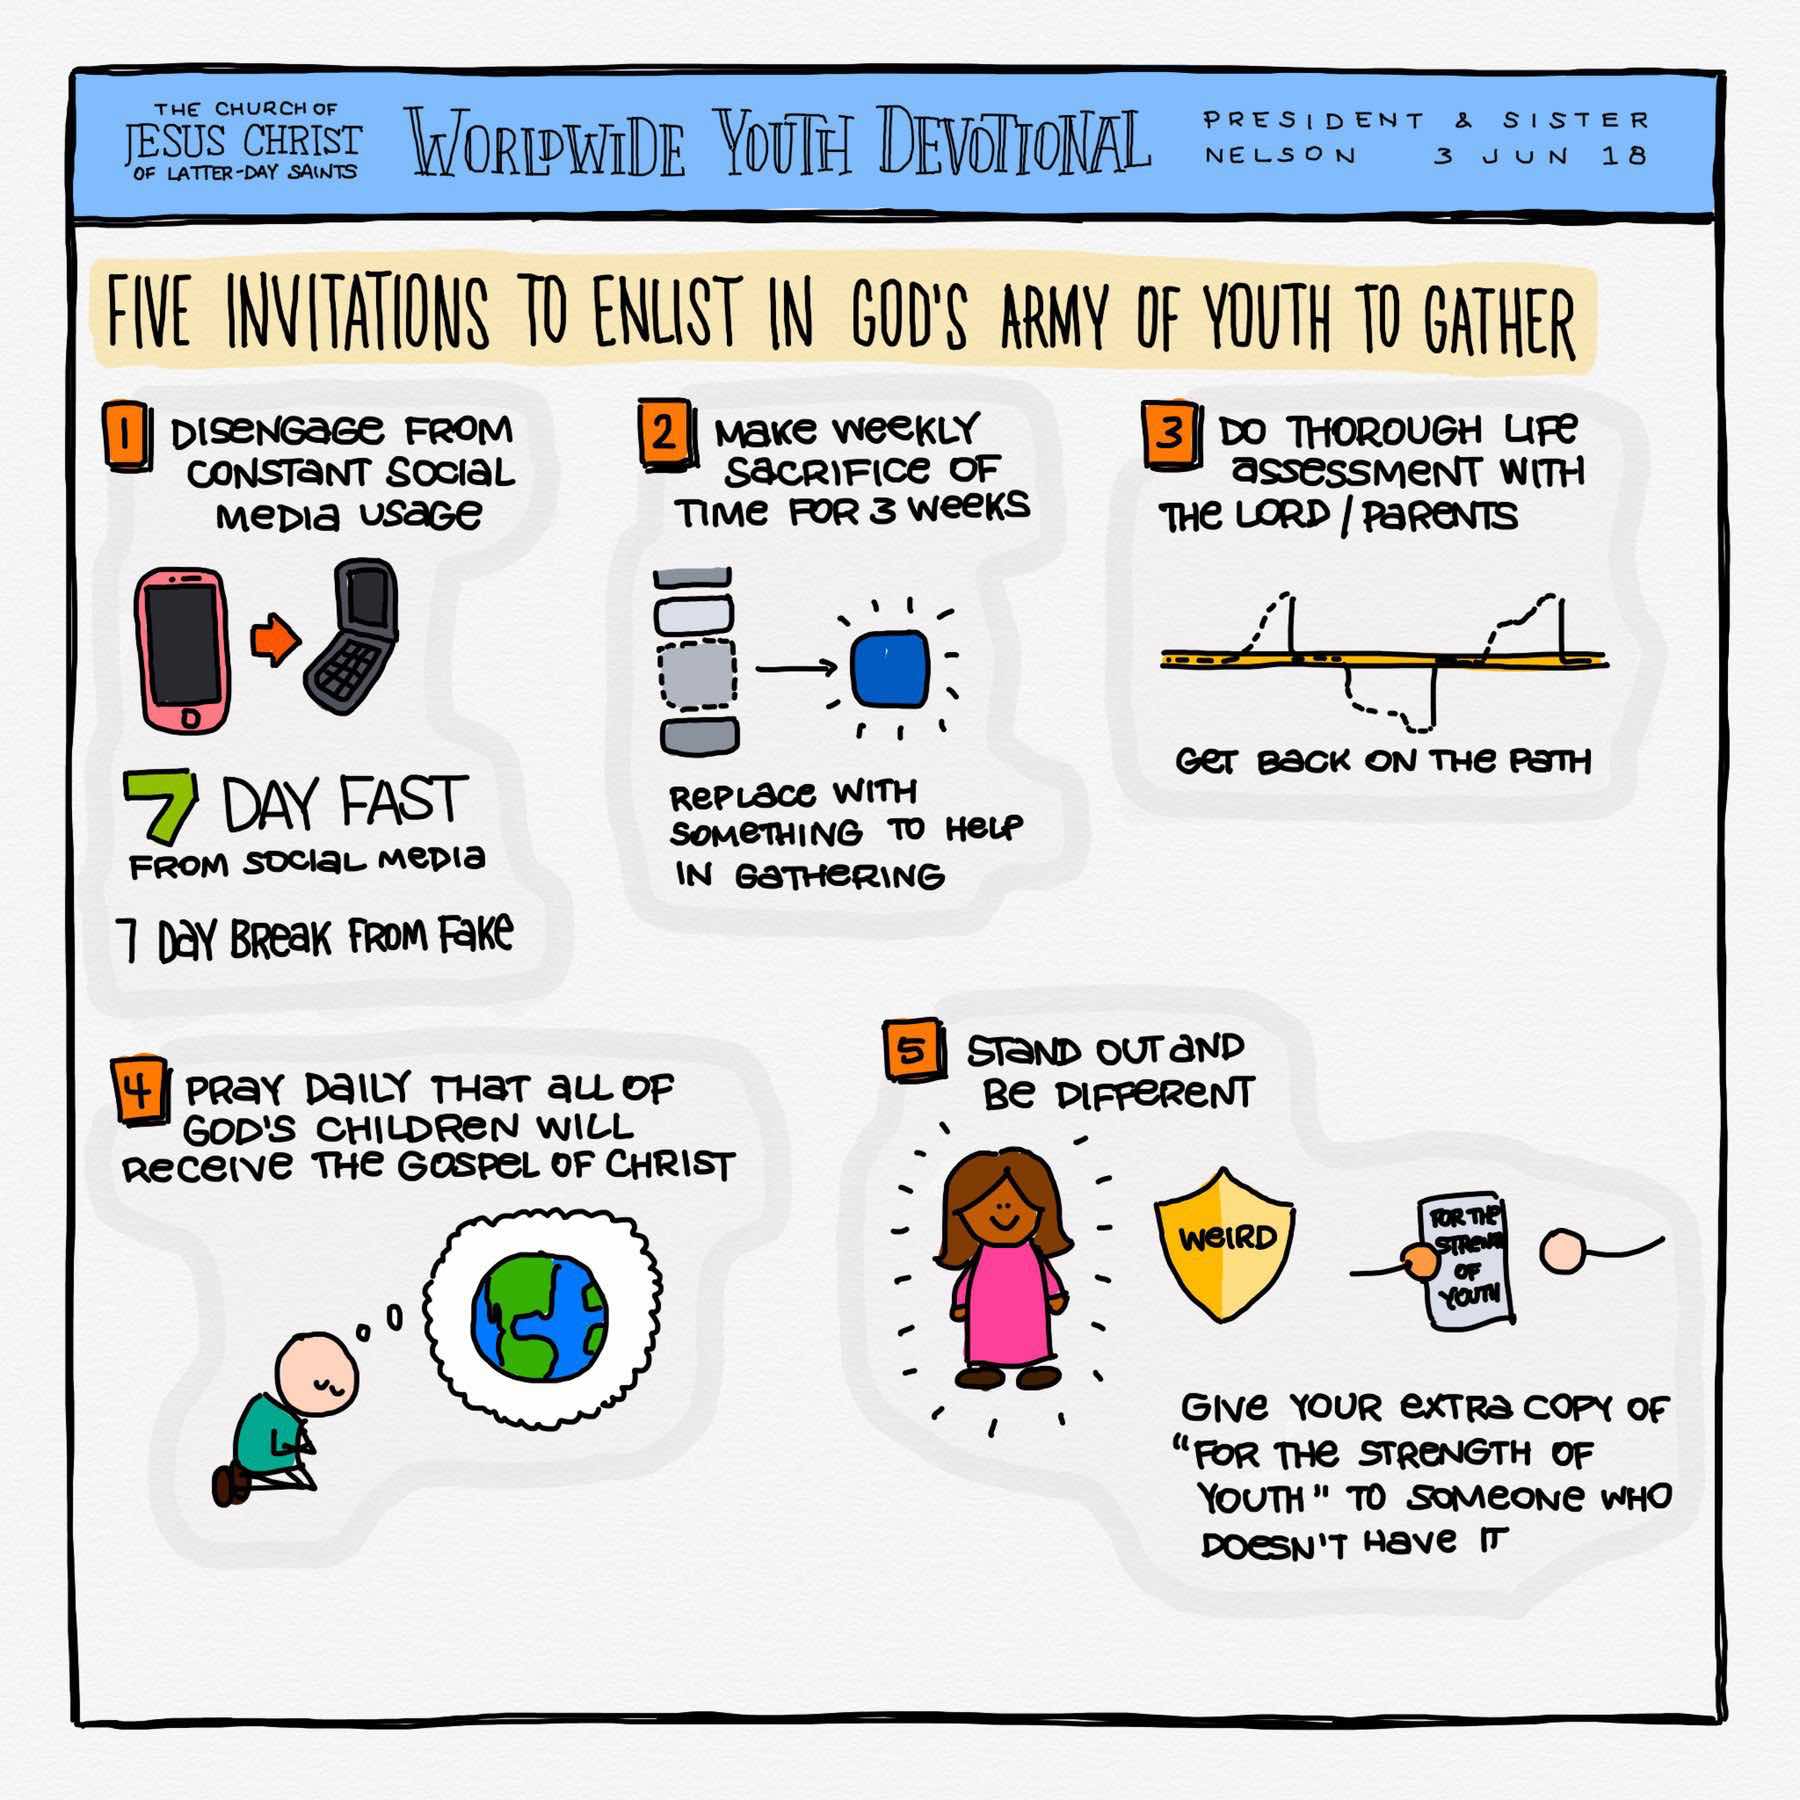 THE CHURCH OF
JESUS CHRIST
OF LATTER-DAY SAINTS
WORLDWIDE YOUTH DEVOTIONAL
PRESIDENT & SISTER
NELSON 3 JUN 18
FIVE INVITATIONS TO ENLIST IN GOD'S ARMY OF YOUTH TO GATHER
1 DISENGAGE FROM
CONSTANT SOCIAL
MEDIA USAGE
7 DAY FAST
FROM SOCIAL MEDIA
7 DAY BREAK FROM FAKE
2 MAKE WEEKLY
SACRIFICE OF
TIME FOR 3 WEEKS
REPLACE WITH
SOMETHING TO HELP
IN GATHERING
3 DO THOROUGH LIFE
ASSESSMENT WITH
THE LORD / PARENTS
GET BACK ON THE PATH
4 PRAY DAILY THAT ALL OF
GOD'S CHILDREN WILL
RECEIVE THE GOSPEL OF CHRIST
5 STAND OUT AND
BE DIFFERENT
WEIRD
FOR THE
STREN
OF
YOUTH
GIVE YOUR EXTRA COPY OF
"FOR THE STRENGTH OF
YOUTH" TO SOMEONE WHO
DOESN'T HAVE IT